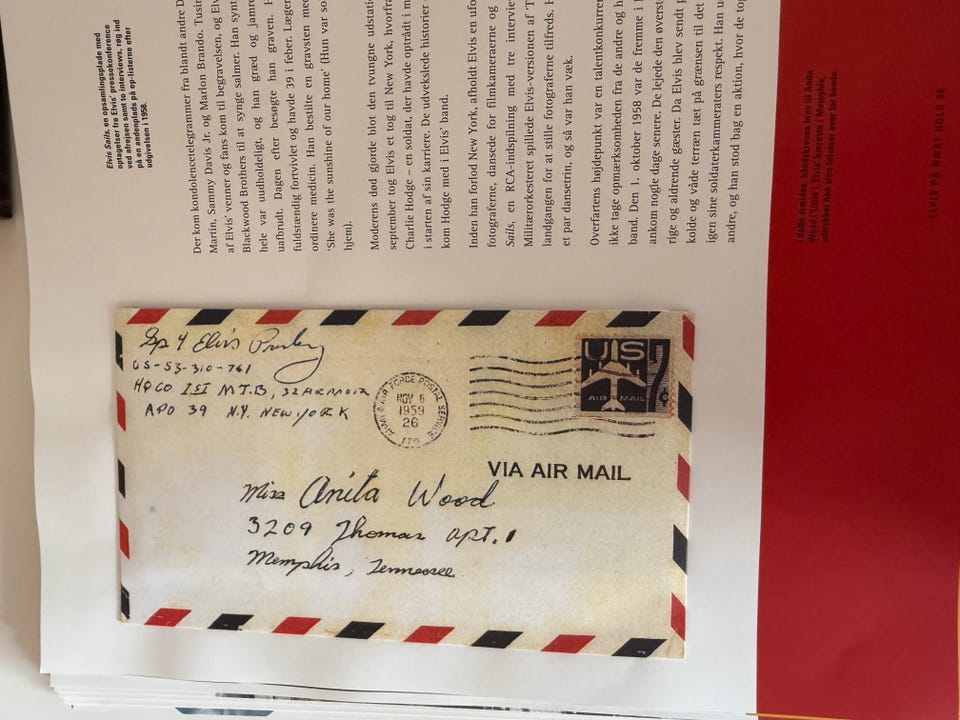 Elvis Sails, en opsamlingsplade med
optagelser fra Elvis' pressekonference
ved afrejsen samt to interviews, røg ind
på en andenplads på op-listerne efter
udgivelsen i 1958.
Der kom kondolencetelegrammer fra blandt andre D
Martin, Sammy Davis Jr. og Marlon Brando. Tusin
af Elvis' venner og fans kom til begravelsen, og Elv
Blackwood Brothers til at synge salmer. Han synt
hele var uudholdeligt, og han græd og jamre
udbrudt. Dagen efter besøgte han graven. H
fuldstændig fortvivlet og havde 39 i feber. Læger
ordinere medicin. Han bestilte en gravsten med
'She was the sunshine of our home' (Hun var so
hjem).
Moderens død gjorde blot den tvungne udstati
september tog Elvis et tog til New York, hvorfra
Charlie Hodge – en soldat, der havde optrådt i
i starten af sin karriere. De udvekslede historier
kom Hodge med i Elvis' band.
Inden han forlod New York, afholdt Elvis en ufo
fotograferne, dansede for filmkameraerne og
Sails, en RCA-indspilning med tre intervie
Militærorkesteret spillede Elvis-versionen af 'T
landgangen for at stille fotograferne tilfreds. H
et par dansetrin, og så var han væk.
Overfartens højdepunkt var en talentkonkurren
ikke tage opmærksomheden fra de andre og h
band. Den 1. oktober 1958 var de fremme i
ankom nogle dage senere. De lejede den øverst
rige og aldrende gæster. Da Elvis blev sendt p
kolde og våde terræn tæt på grænsen til det
igen sine soldaterkammeraters respekt. Han u
andre, og han stod bag en aktion, hvor de to
Sp 4 Elvis Presley
US-53-310-761
HQ CO 1ST M.T.B, 32 ARMOR
APO 39 N.Y. NEW YORK
ARMY & AIR FORCE POSTAL SERVICE
NOV 6
1959
26
APO
US
7¢
AIR MAIL
VIA AIR MAIL
Miss Anita Wood
3209 Thomas apt. 1
Memphis, Tennessee
I dette sjældne, håndskrevne brev til Anita
Wood ('Little'), Elvis' kæreste i Memphis,
udtrykker han sine følelser over for hende.
ELVIS PÅ NÆRT HOLD 39